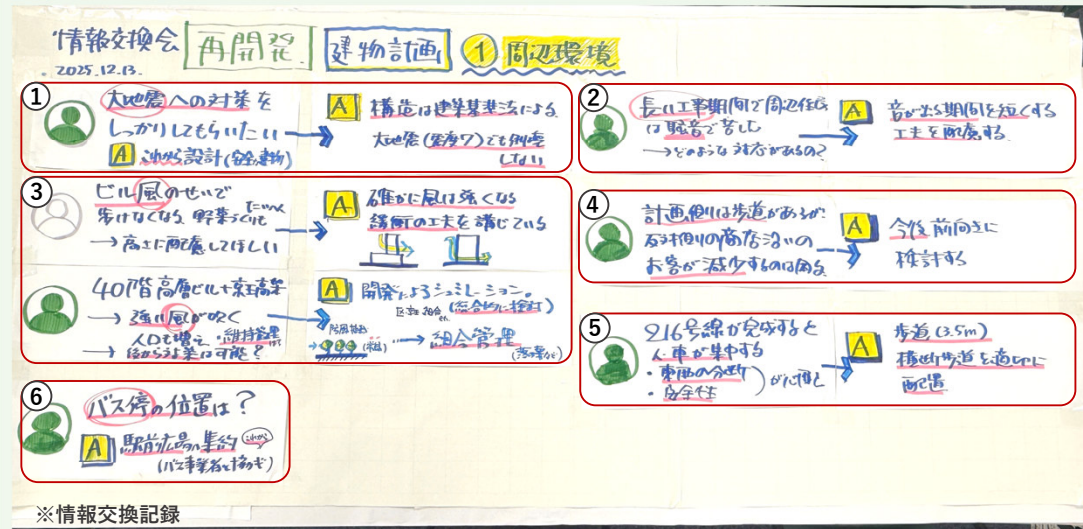 情報交換会 再開発 建物計画 ① 周辺環境
2025.12.13.
①
大地震への対策を
しっかりしてもらいたい
A これから設計(安全な建物)
A 構造は建築基準法による
大地震(震度7)でも倒壊
しない
②
長い工事期間で周辺住民
は騒音で苦しむ
→どのような対応があるの?
A 音が出る期間を短くする
工夫を配慮する
③
ビル風のせいで
歩けなくなる
→高さに配慮してほしい
A 確かに風は強くなる
緩衝の工夫を講じている
40階高層ビル+京王高架
→強い風が吹く
人口も増え ・維持管理
→後から対策は可能?
A 開発によるシュミレーション。
(総合的に検討)
防風植栽
→組合管理
(落ち葉など)
④
計画側は歩道があるが
お客が減少するのは困る
A 今後前向きに
検討する
⑤
216号線が完成すると
人・車が集中する
・東西の分断
・安全性
A 歩道(3.5m)
横断歩道を適切に
配置
⑥
バス停の位置は?
A 駅前広場に集約 これから
(バス事業者と協ぎ)
※情報交換記録